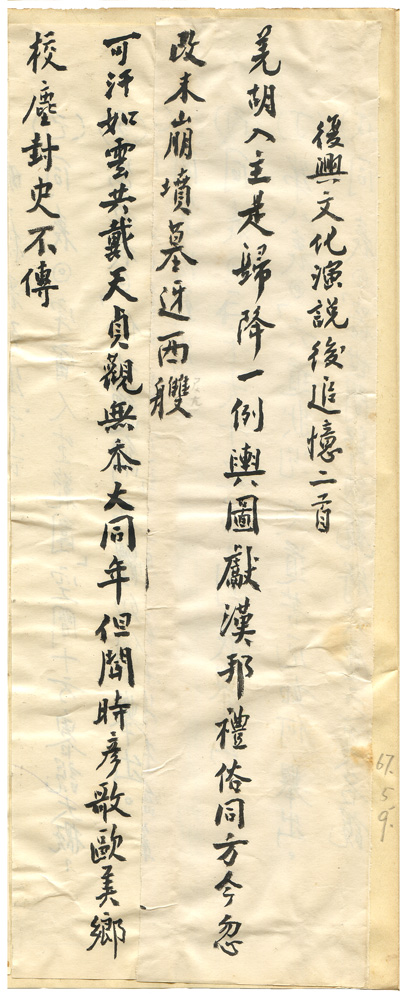 復興文化演説後追憶二首
羌胡入主是歸降一例輿圖獻漢邦禮俗同方今忽
改未崩墳墓迓西艭
可汗如雲共戴天貞觀無忝大同年但聞時彥歌歐美鄉
校塵封史不傳
67.5.9.